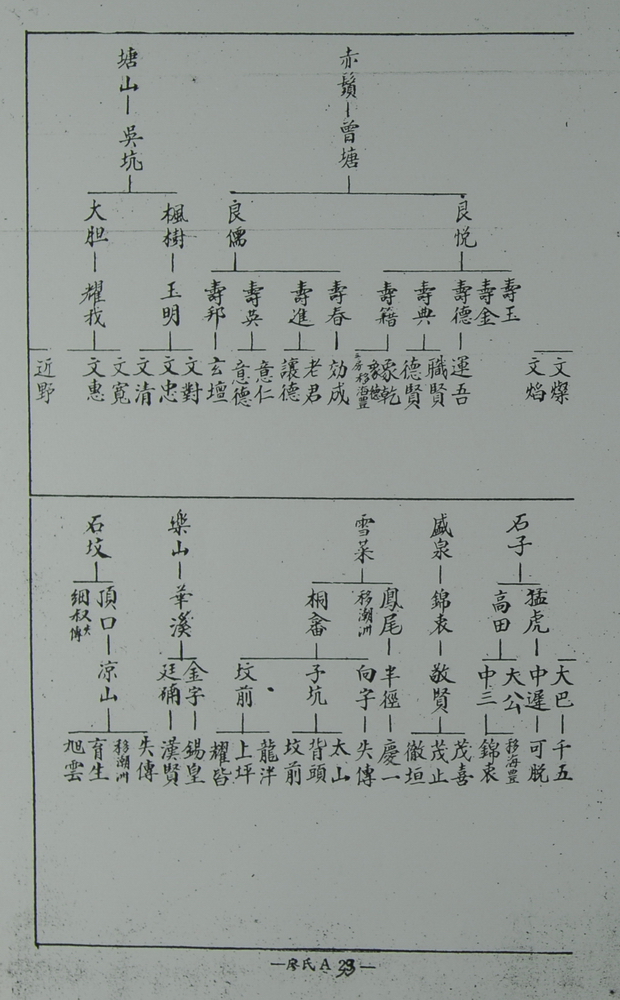 赤鬚
曾塘
良悦
壽玉
壽金
壽德
壽典
壽籍
文燦
文焰
運吾
職賢
德賢
象乾
移海豐
良儒
壽春
壽進
壽英
壽邦
効成
老君
讓德
意仁
意德
玄壇
塘山
吳坑
楓樹
玉明
文對
文忠
文清
大胆
耀我
文寬
文惠
近野
石子
猛虎
高田
大巴
中遲
大公
中三
千五
可脱
移海豐
錦衷
盛泉
錦衷
敬賢
茂喜
茂止
徽垣
雪菜
鳳尾
移潮洲
桐畬
半徑
慶一
向字
子坑
坟前
失傳
太山
背頭
坟前
龍洋
上坪
耀皆
樂山
華溪
金字
廷碖
錫皇
漢賢
石坟
頂口
細叔失傳
凉山
失傳
移潮洲
育生
旭雲
—廖氏A 39—